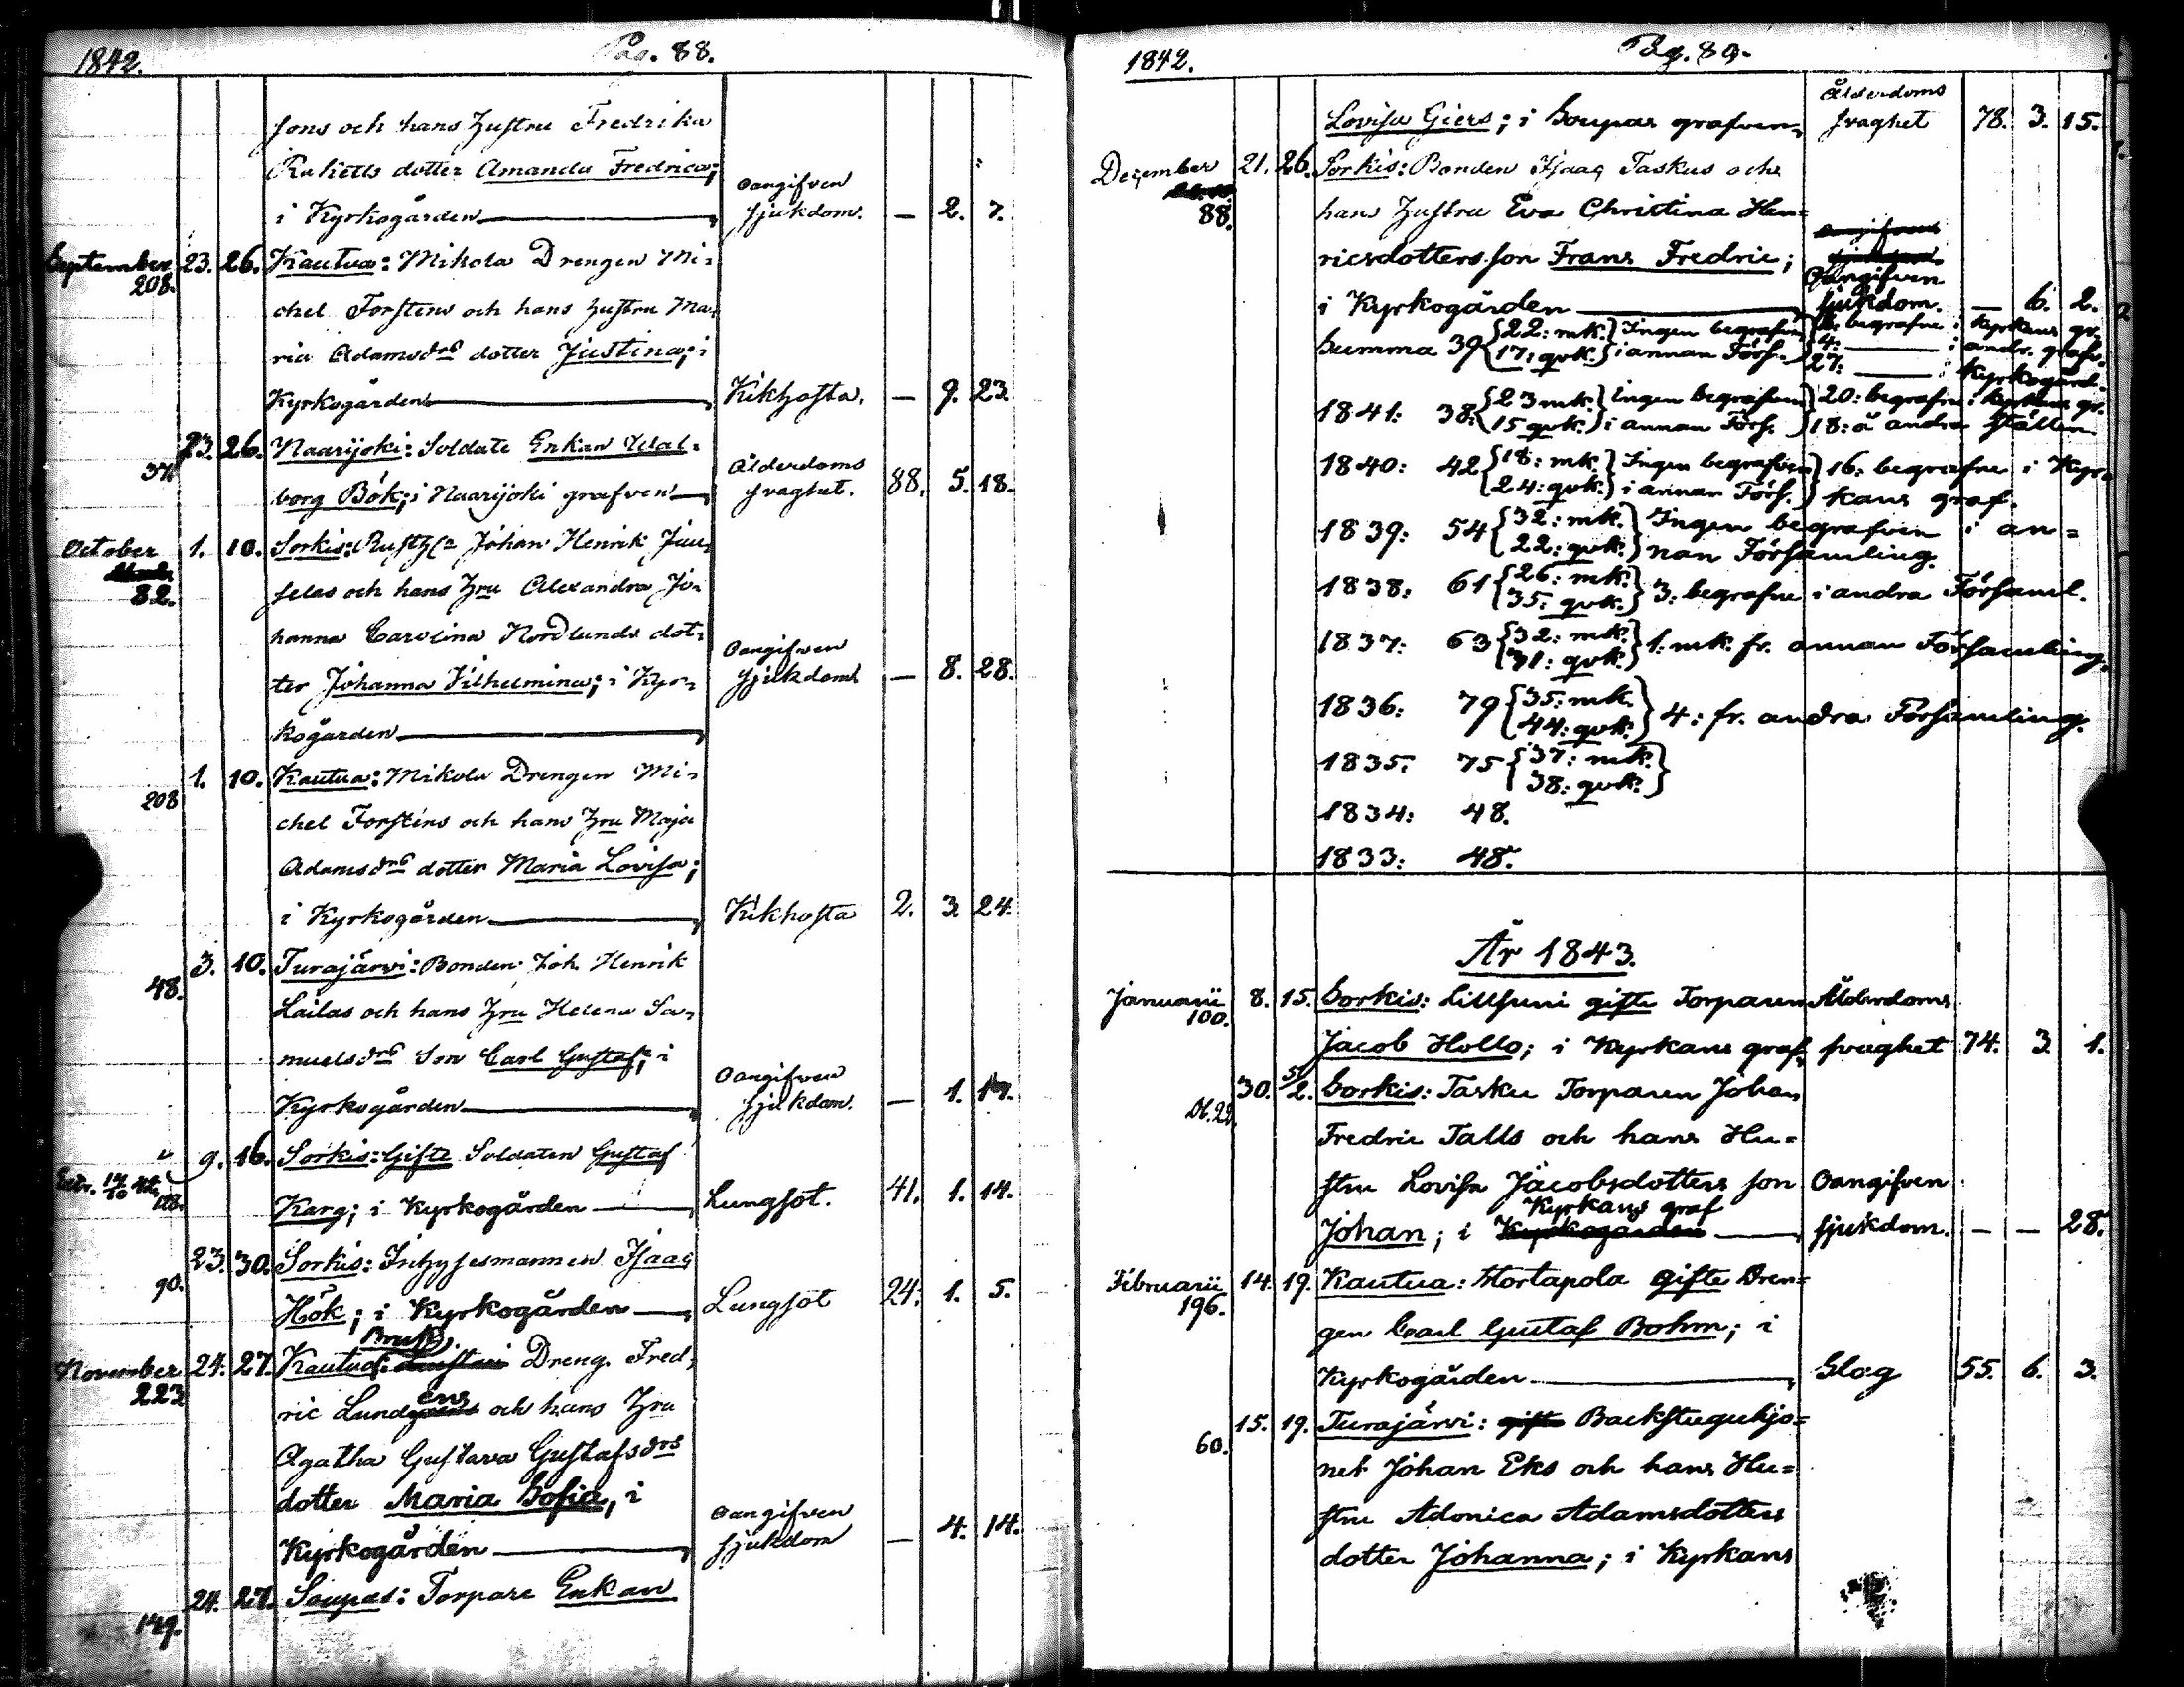 1842. Pag. 88.
sons och hans hustru Fredrika
Raketts dotter Amanda Fredrica;
i Kyrkogården — Oangifven sjukdom. — 2. 7.
September 23. 26. Kautua: Mikola Drengen Mi-
208. chel Forstens och hans hustru Ma-
ria Adamsdrs dotter Justina; i
Kyrkogården — Kikhosta. — 9. 23.
23. 26. Naarijoki: Soldats Enkan Wal-
37. borg Bök; i Naarijoki grafven — Ålderdoms svaghet. 88. 5. 18.
October 1. 10. Sorkis: Johan Henrik Juu-
82. selas och hans hru Alexandra Jo-
hanna Carolina Nordlunds dot-
ter Johanna Vilhelmina; i Kyr- Oangifven sjukdom — 8. 28.
kogården —
1. 10. Kautua: Mikola Drengen Mi-
208 chel Forstens och hans hru Maja
Adamsdrs dotter Maria Lovisa;
i Kyrkogården — Kikhosta 2. 3. 24.
3. 10. Turajärvi: Bonden Joh. Henrik
48. Lailas och hans hru Helena Sa-
muelsdrs Son Carl Gustaf; i
Kyrkogården — Oangifven sjukdom. — 1.
9. 16. Sorkis: Gifte Soldaten Gustaf
Karg; i Kyrkogården — Lungsot. 41. 1. 14.
23. 30. Sorkis: Inhysesmannen Isaac
90. Hök; i Kyrkogården — Lungsot 24. 1. 5.
November 24. 27. Kautua: Bruks Dreng. Fred-
223 ric Lundens och hans hru
Agatha Gustava Gustafsdrs
dotter Maria Sofia, i
Kyrkogården — Oangifven sjukdom — 4. 14.
24. 27. Soupas: Torpare Enkan
149.
1842. Pag. 89.
Lovisa Giers; i Soupas grafven, Ålderdoms svaghet 78. 3. 15.
December 21. 26. Sorkis: Bonden Isaac Taskus och
88. hans hustru Eva Christina Hen-
ricsdotters son Frans Fredric;
i Kyrkogården — Oangifven sjukdom. — 6. 2.
Summa 39 {22: mk. 17: qvk.} Ingen begrafven i annan Förs. begrafne i Kyrkans gr. 4: — i andr. grafv. 27: — i Kyrkogård.
1841: 38: {23 mk. 15 qvk.} Ingen begrafven i annan Förs. } 20: begrafne i Kyrkans gr. 18: å andra ställen
1840: 42 {18: mk. 24: qvk.} Ingen begrafven i annan Förs. } 16: begrafne i Kyr-
kans graf.
1839: 54 {32: mk. 22: qvk.} Ingen begrafven i an-
nan Församling.
1838: 61 {26: mk. 35: qvk.} 3: begrafne i andra Församl.
1837: 63 {32: mk. 31: qvk.} 1: mk. fr. annan Församling.
1836: 79 {35: mk. 44: qvk.} 4: fr. andra Församling.
1835: 75 {37: mk. 38: qvk.}
1834: 48.
1833: 48.
År 1843.
Januarii 8. 15. Sorkis: Lillsuni gifte Torparen Ålderdoms
100. Jacob Hollo; i Kyrkans graf, svaghet 74. 3. 1.
30. 5/2. Sorkis: Tasku Torparen Johan
Fredric Talls och hans Hu-
stru Lovisa Jacobsdotters son Oangifven
Johan; i Kyrkans graf — sjukdom. — — 28.
Februarii 14. 19. Kautua: Stortapola gifte Dren-
196. gen Carl Gustaf Bohm; i
Kyrkogården — Slag 55. 6. 3.
15. 19. Turajärvi: gifte Backstuguhjo-
60. net Johan Eks och hans Hu-
stru Adonica Adamsdotters
dotter Johanna; i Kyrkans